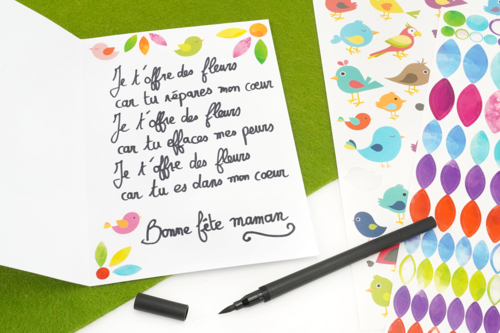 Je t'offre des fleurs
car tu répares mon cœur
Je t'offre des fleurs
car tu effaces mes peurs
Je t'offre des fleurs
car tu es dans mon cœur
Bonne fête maman